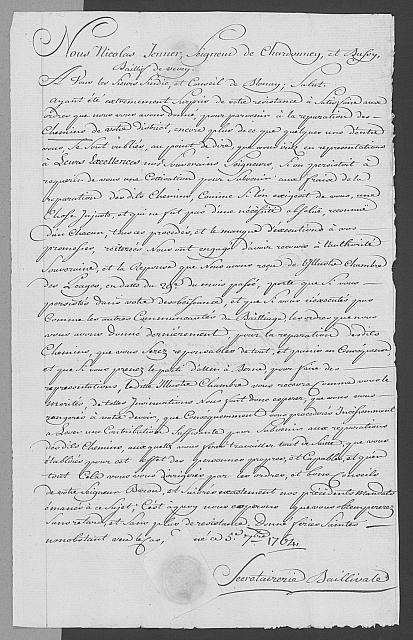 Nous Nicolas Jenner, Seigneur de Chardonney, et Bussy,
Baillif de Vevey.
A Vous les Sieurs Sindic, et Conseil de Blonay; Salut.
Ayant été extrémement surpris de votre resistance à satisfaire aux
ordres que nous vous avons donné, pour parvenir à la reparation des
Chemins de votre District, encore plus de ce que quelques uns dentre
vous se sont oubliés, au point de dire, que vous iriez en representations
à Leurs Excellences nos Souverains Seigneurs, Si on persistoit à
requerir de vous une Cottisation pour Subvenir aux fraix de la
reparation desdits Chemins, Comme Si l'on exigeoit de vous, une
Chose injuste, et qui ne fut pas d'une necessité absolue, reconnue
d'un Chacun; tous ces procedés, et le manque d'execution à vos
promesses, reiterées Nous ont engagé d'avoir recours à l'authorité
Souveraine, et la Reponse que Nous avons reçu de l'Illustre Chambre
des Péages, en datte du 29e du mois passé, porte que Si vous
persistés dans votre desobeissance, et que Si vous n'executés pas
Comme les autres Communautés du Bailliage les ordres que nous
vous avons donné dernierement, pour la reparation desdits
Chemins, que vous Serez responsables de tout, et punis en Consequence
et que Si vous prenez le parti d'aller à Berne, pour faire des
representations, ladite Illustre Chambre vous recevra Comme vous le
merités, de telles Insinuations Nous font donc esperer, que vous vous
rangerés à votre devoir, que Consequemment vous procederés Incessamment
à Lever une Contribution Suffisante pour Subvenir aux reparations
desdits Chemins, auxquels vous ferez travailler tout de Suite, que vous
établirés pour cet effet des personnes propres, et Capables, et qu'en
tout Cela vous vous dirigerés par les ordres, et bons Conseils
de votre Seigneur Baron, et Suivrés exactement nos précedents Mandats
émanés à ce Sujet; C'est à quoy nous esperons que vous obtempererez
Sans retard, et Sans plus de resistance, donné feries Saintes
nonobstant vendanges, ce 3e 7bre 1764
Secretairerie Baillivale